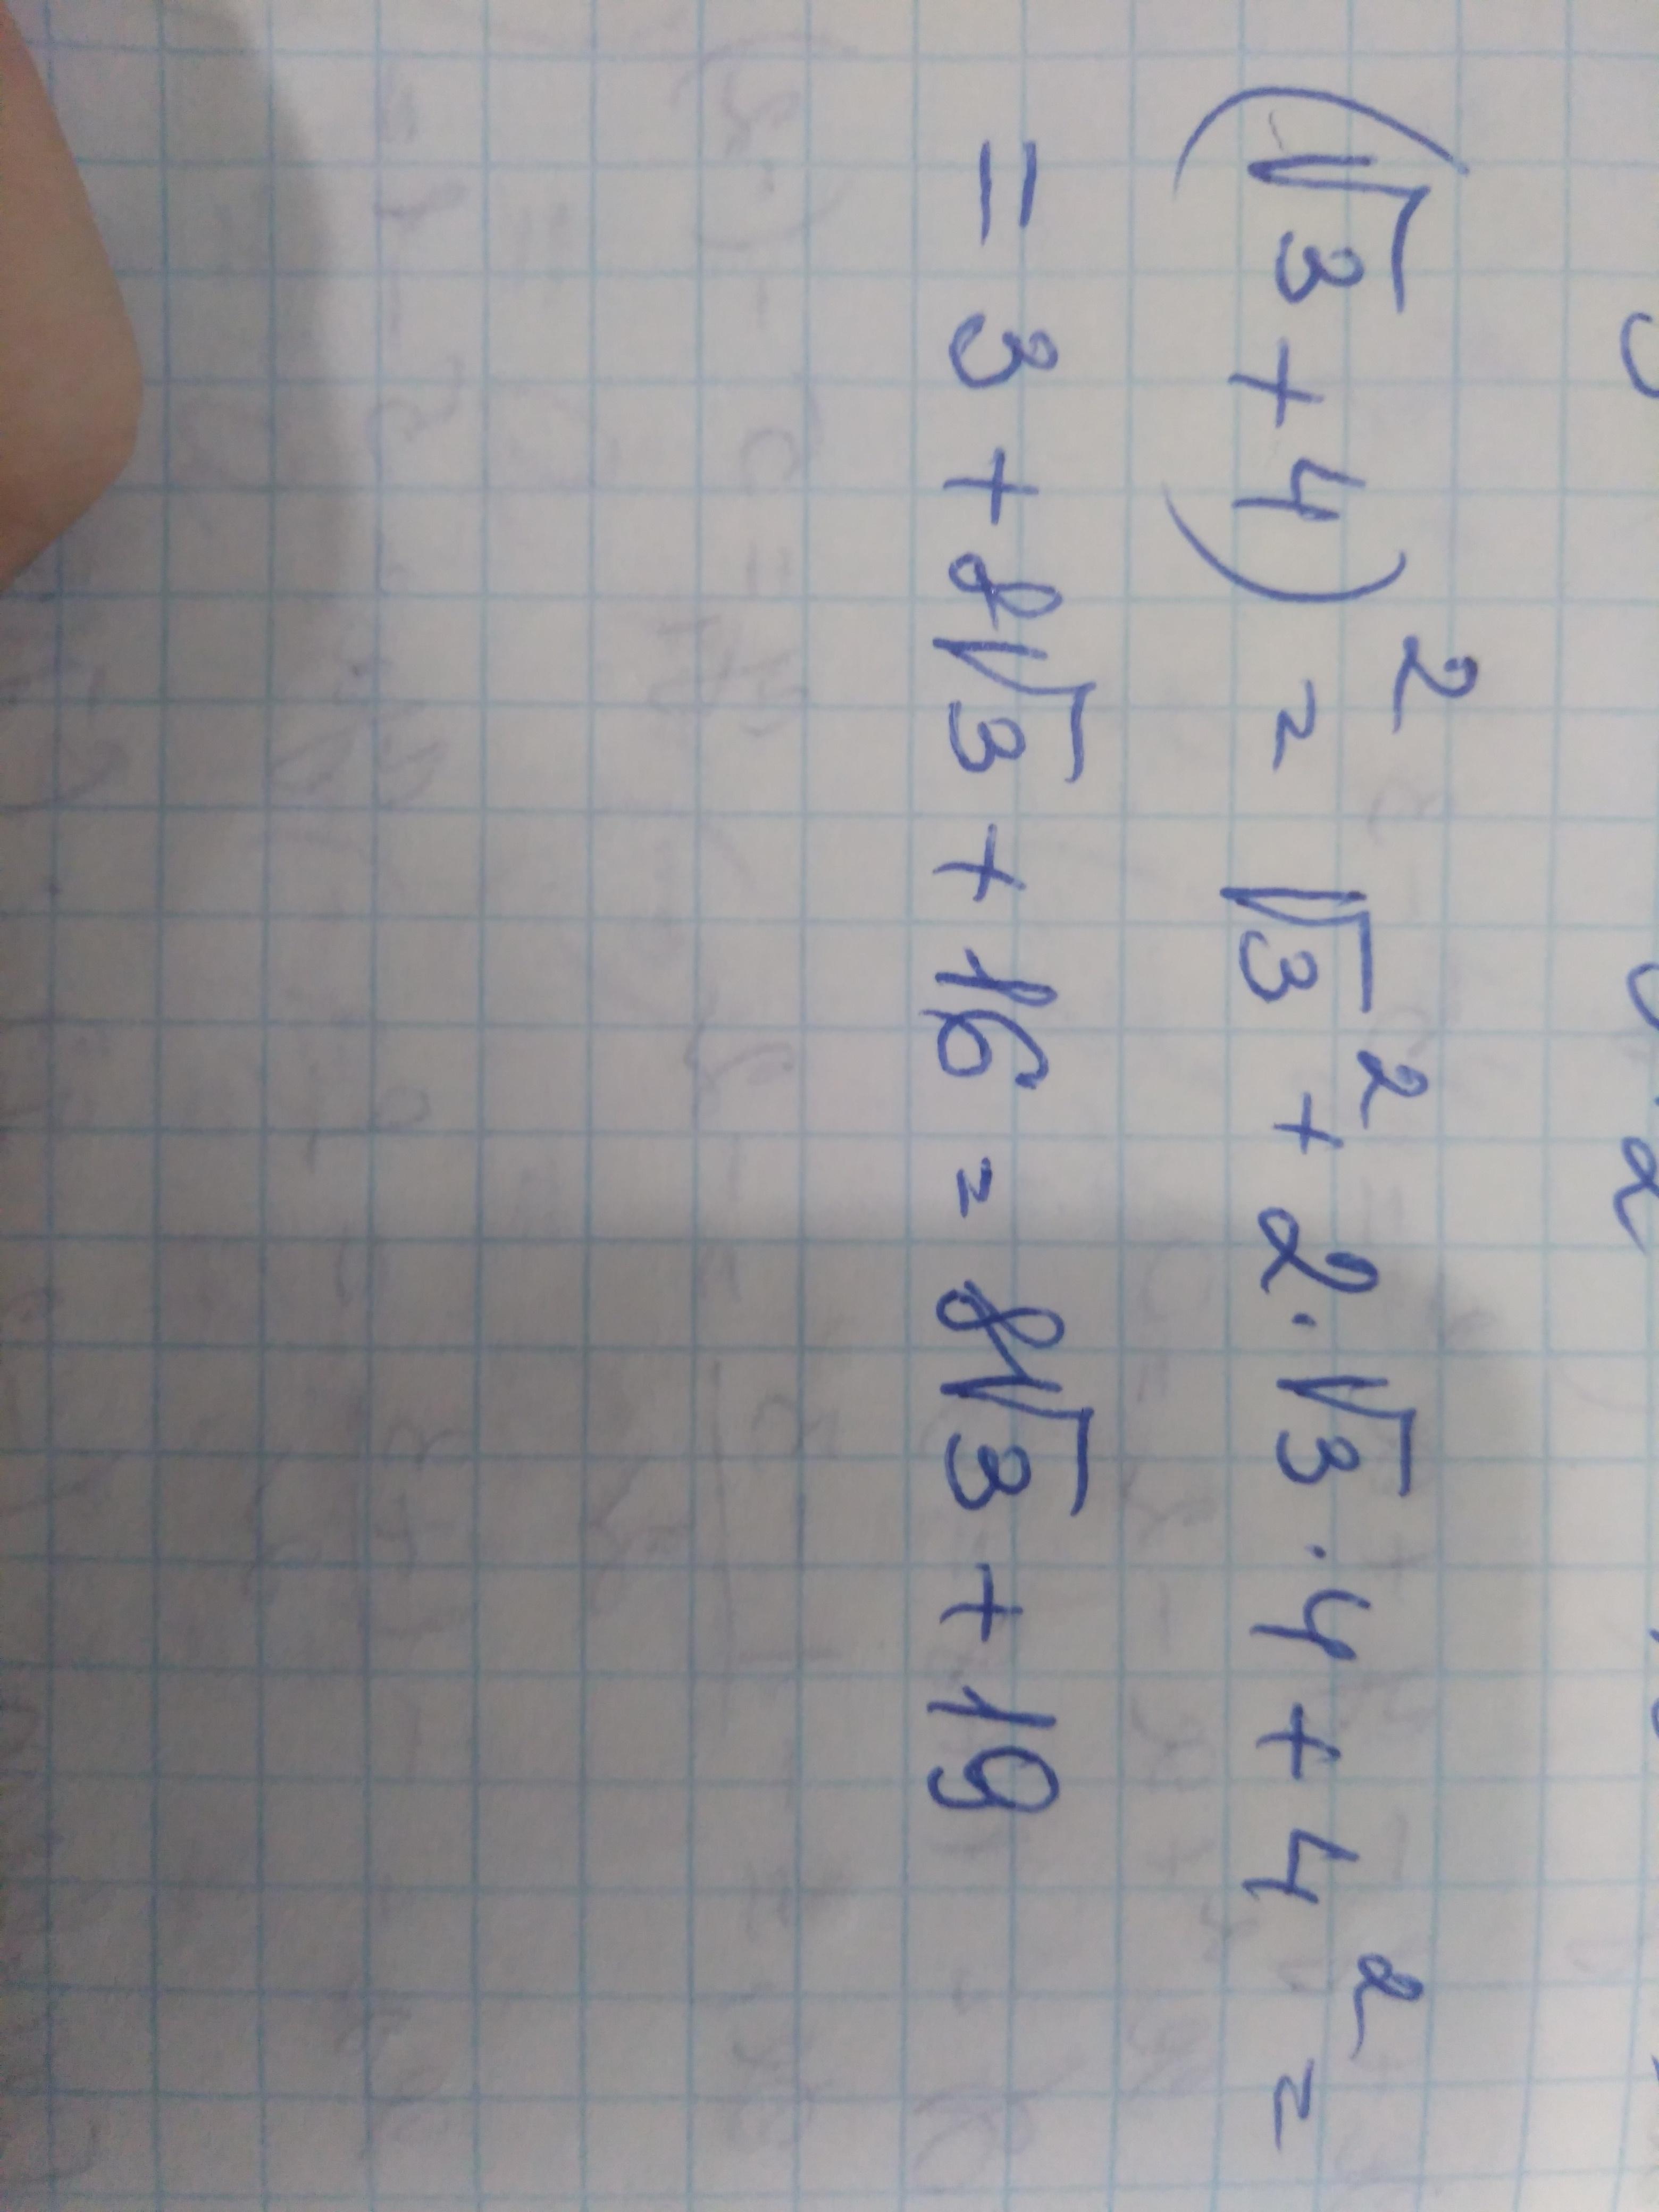 (√3 + 4)² = √3² + 2·√3·4 + 4² =
= 3 + 8√3 + 16 = 8√3 + 19